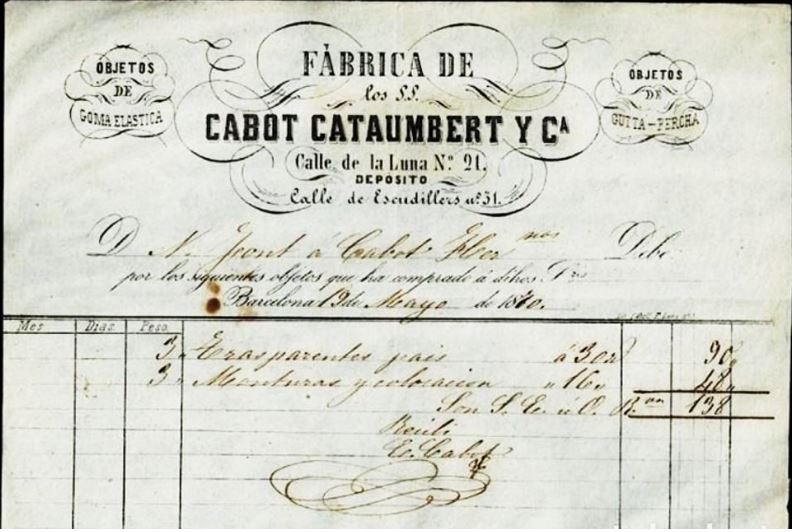 FÀBRICA DE
los S.S.
CABOT CATAUMBERT Y Cª
Calle de la Luna Nº 21.
DEPOSITO
Calle de Escudillers nº 31.
OBJETOS
DE
GOMA ELASTICA
OBJETOS
DE
GUTTA-PERCHA
D N. Font á Cabot Her nos Debe
por los siguientes objetos que ha comprado á dihos S res
Barcelona 19 de Mayo de 1870.
Mes Dias. Peso.
3 Trasparentes pais á 30 90
3 Monturas y colocacion 16 48
Son S. E. ú O. R. on 138
Recibi
E. Cabot